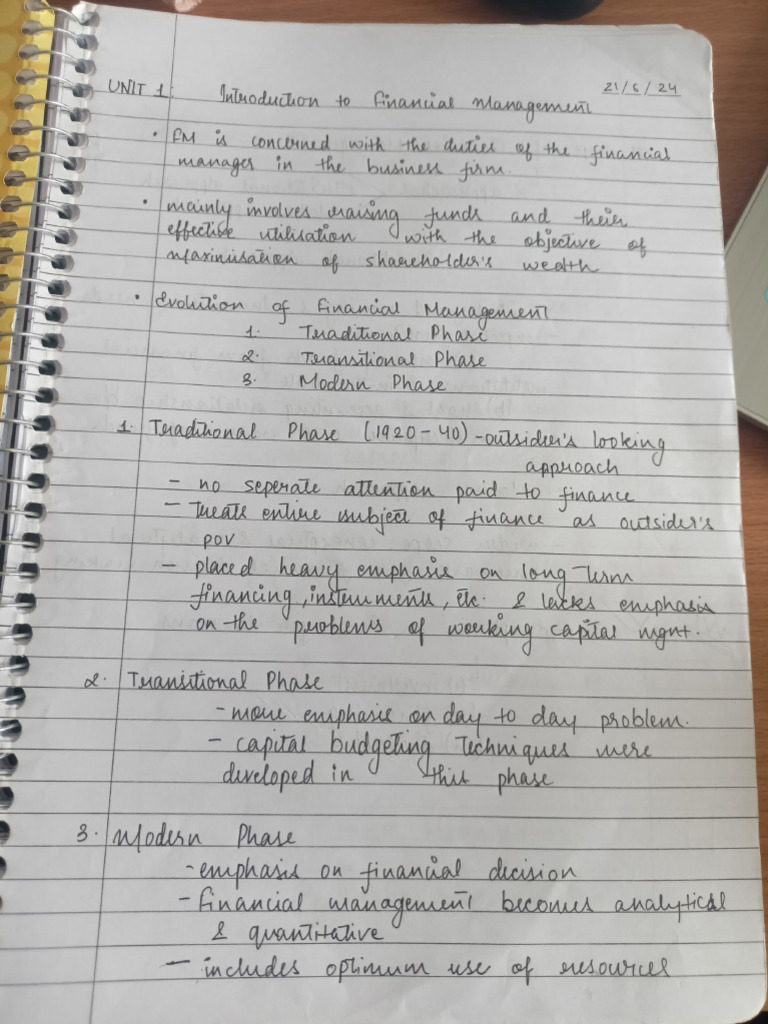 UNIT 1: Introduction to Financial Management 21/6/24
• FM is concerned with the duties of the financial
manager in the business firm.
• mainly involves raising funds and their
effective utilisation with the objective of
Maximisation of shareholder's wealth
• Evolution of Financial Management
1. Traditional Phase
2. Transitional Phase
3. Modern Phase
1. Traditional Phase (1920-40) - outsider's looking
approach
- no seperate attention paid to finance
- treats entire subject of finance as outsider's
pov
- placed heavy emphasis on long term
financing, instruments, etc. & lacks emphasis
on the problems of working capital mgnt.
2. Transitional Phase
- more emphasis on day to day problem.
- capital budgeting techniques were
developed in this phase
3. Modern Phase
- emphasis on financial decision
- financial management becomes analytical
& quantitative
- includes optimum use of resources